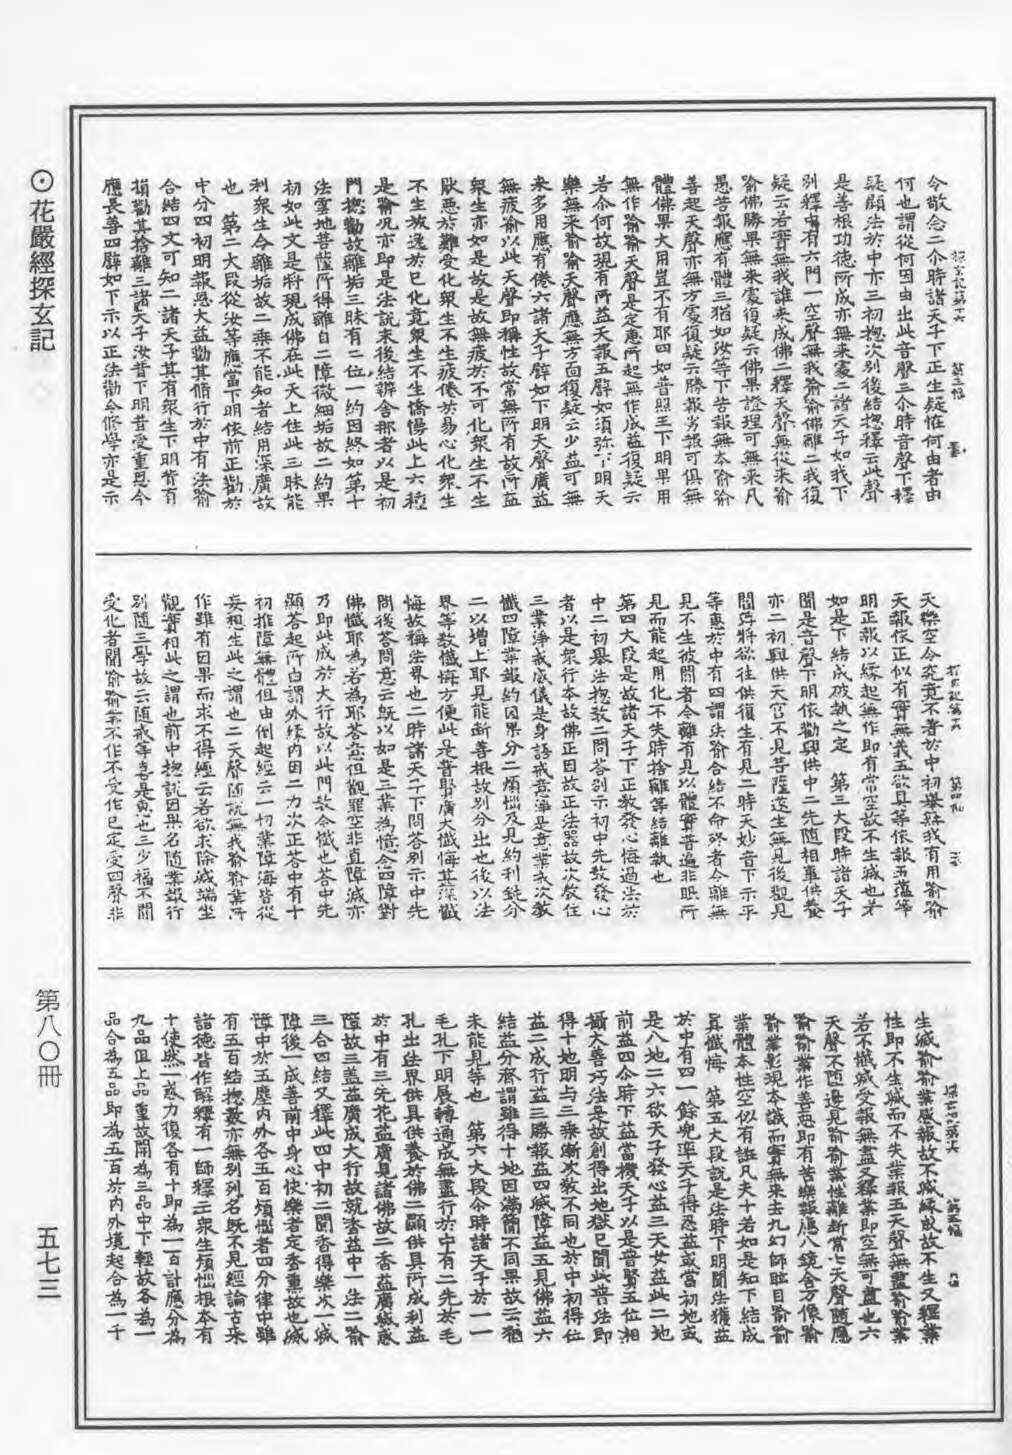 ⊙花嚴經探玄記
第八〇冊
五七三
令敬念二尒時諸天子下正生疑恠何由者由
何也謂從何因由出此音聲三尒時音聲下釋
疑顯法於中亦三初揔次別後結揔釋云此聲
是善根功德所成亦無来處二諸天子如我下
別釋中有六門一空聲無我喻喻佛離二我復
疑云若實無我誰来成佛二釋天聲無從来喻
喻佛勝果無来處復疑云佛果證理可無来凡
愚苦報應有體三猶如汝等下苦報無本喻喻
善起天聲亦無方處復疑云勝報劣報可俱無
體佛果大用豈不有耶四如普照王下明果用
無作喻喻天聲是定惠所起無作成益復疑云
若尒何故現有所益天報五譬如須弥下明天
樂無来喻喻天聲應無方面復疑云少益可無
来多用應有倦六諸天子譬如下明天聲廣益
無疲喻以此天聲即稱性故常無所有故所益
衆生亦如是故是故無疲於不可化衆生不生
猒惡於難受化衆生不生疲倦於易心化衆生
不生放逸於已化竟衆生不生憍傷此上六種
是喻況亦即是法說末後結辨舍那者以是初
門揔勸故離垢三昧有二位一約因終如第十
法雲地菩薩所得離自二障微細垢故二約果
初如此文是将現成佛在此天上住此三昧能
利衆生令離垢故二乘不能知者結用深廣故
也　第二大段從汝等應當下明依前正勸於
中分四初明報恩大益勸其脩行於中有法喻
合結四文可知二諸天子其有衆生下明背有
損勸其捨離三諸天子汝昔下明昔受重恩今
應長善四譬如下示以正法勸令修學亦是示
天樂空令究竟不著於中初舉餘我有用喻喻
天報依正似有實無義五欲具等依報五蘊等
明正報以縁起無作即有常空故不生滅也若
如是下結成破執之定　第三大段時諸天子
聞是音聲下明依勸興供中二先随相事供養
亦二初興供天宮不見菩薩遂生無見後聖見
聞弃将欲往供復生有見二時天妙音下示平
等惠於中有四謂法喻合結不命終者令離無
見不生彼間者令離有見以體實普遍非眼所
見而能起用化不失時捨離等結離執也
第四大段是故諸天子下正教發心悔過法於
中二初舉法揔教二問答別示初中先教發心
者以是衆行本故佛正因故正法器故次教住
三業淨戒威儀是身語戒意淨是意業戒次教
懺四障業報約因果分二煩惱及見約利鈍分
二以增上耶見能断善根故別分出也後以法
界等教懺悔方便此是普賢廣大懺悔甚深懺
悔故稱法界也二時諸天子下問答別示中先
問後答問意云旣以如是三業為憶念四障對
佛懺耶為若為耶答意但觀罪空非直障滅亦
乃即此成於大行故以此門教令懺也答中先
顯答起所由謂外縁内因二力次正答中有十
初推障無體但由倒起經云一切業障海皆從
妄想生此之謂也二天聲随説無我喻喻業所
作雖有因果而求不得經云若欲求除滅端坐
觀實相此之謂也前中揔說因果名随業報行
別随三學故云随戒等喜是惠也三少福不聞
受化者聞喻喻業不作不受作已定受四聲非
生滅喻喻業感報故不滅縁故故不生又釋業
性即不生滅而不失業報五天聲無盡喻喻業
若不懺滅受報無盡又釋業即空無可盡也六
天聲不随邊見喻喻業性離断常七天聲随應
喻喻業作善惡即有苦樂報應八鏡含方像喻
喻業影現本識而實無来去九幻師眩目喻喻
業體本性空似有誑凡夫十若如是知下結成
眞懺悔　第五大段說是法時下明聞法獲益
於中有四一餘兜率天子得忍益或當初地或
是八地二六欲天子發心益三天女益此二地
前益四尒時下益當機天子以是普賢五位相
攝大善巧法是故創得出地獄已聞此普法即
得十地明与三乘漸次教不同也於中初得位
益二成行益三勝報益四滅障益五見佛益六
結益分齊謂雖得十地因滿簡不同果故云猶
未能見等也　第六大段令時諸天子於一一
毛孔下明展轉通成無盡行於中有二先於毛
孔出法界供具供養於佛二顯供具所成利益
於中有三先花益廣見諸佛故二香益廣滅惑
障故三盖益廣成大行故就香益中一法二喻
三合四結又釋此四中初二聞香得樂次一滅
障後一成善前中身心快樂者定香熏故也滅
障中於五塵内外各五百煩惱者四分律中雖
有五百結揔數亦無別列名旣不見經論古來
諸德皆作解釋有一師釋云衆生煩惱根本有
十使然一惑力復各有十即為一百計應分為
九品但上品重故開為三品中下輕故各為一
品合為五品即為五百於内外境起合為一千